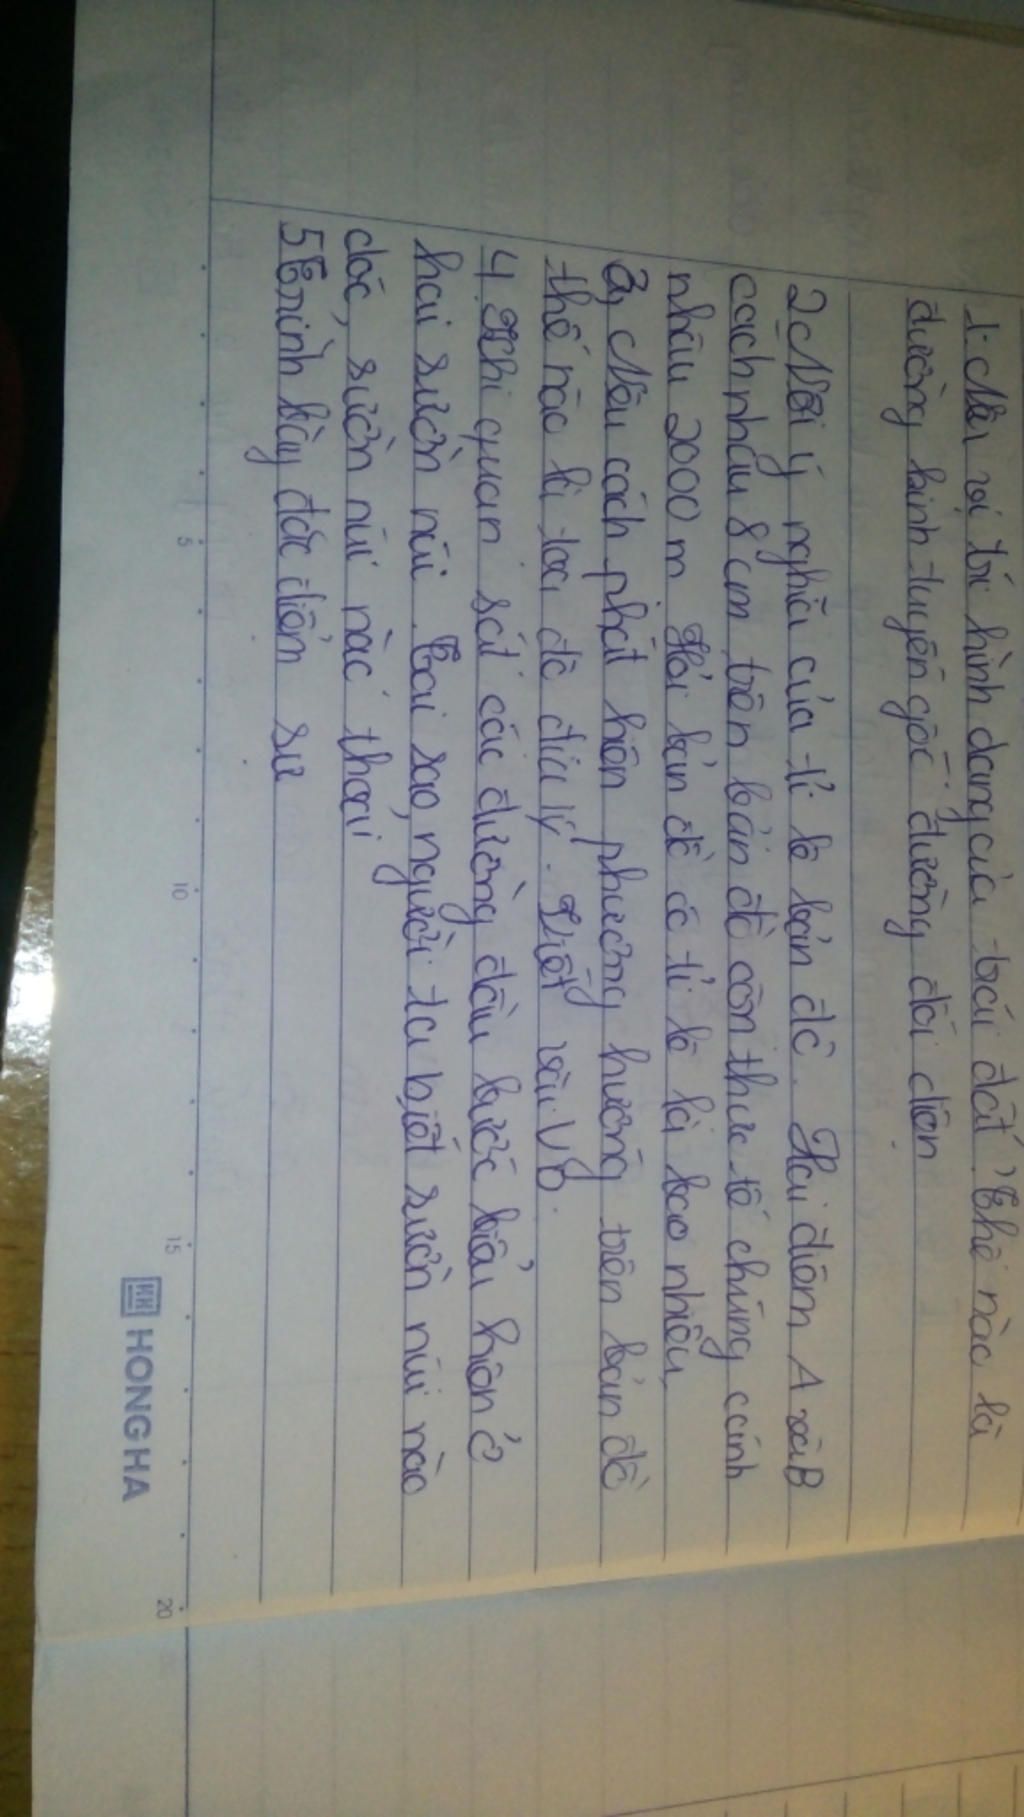 1. Nêu vị trí hình dạng của trái đất. Thế nào là
đường kinh tuyến gốc - đường đối diện
2. Nói ý nghĩa của tỉ lệ bản đồ. Hai điểm A và B
cách nhau 8 cm trên bản đồ còn thực tế chúng cánh
nhau 2000 m Hỏi bản đồ có tỉ lệ là bao nhiêu
3, Nêu cách phát hiện phương hướng trên bản đồ
thế nào là tọa độ địa lý. Viết ... VD.
4. Khi quan sát các đường đồng bước biểu hiện ở
hai sườn núi. Tai sao, người ta biết sườn núi nào
dốc, sườn núi nào thoải
5 Trình bày đặc điểm sự
5
10
15
20
HONG HA